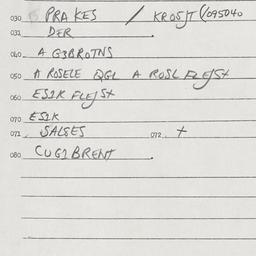 030 PRAKES / KROSJT (/095040
031 DER .
040 A G3BROTNS
050 A ROSELE QGL A ROSL FLEJSt
060 ES1K FLEJSt
070 ES1K
071 SALSES 072 t
080 CUG1BRENT .